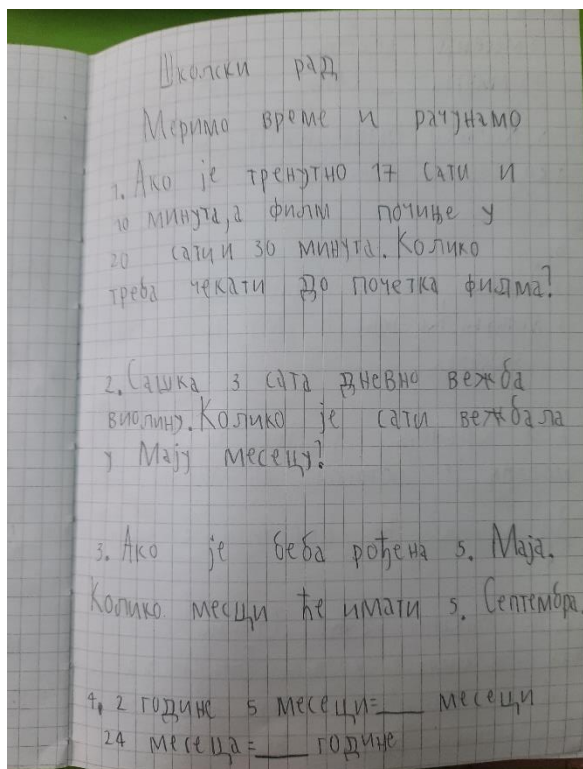 Школски рад
Меримо време и рачунамо
1. Ако је тренутно 17 сати и
10 минута, а филм почиње у
20 сати и 30 минута. Колико
треба чекати до почетка филма?
2. Сашка 3 сата дневно вежба
виолину. Колико је сати вежбала
у Мају месецу?
3. Ако је беба рођена 5. Маја.
Колико месци ће имати 5. Септембра.
4. 2 године 5 месеци=___ месеци
24 месеца=___ године